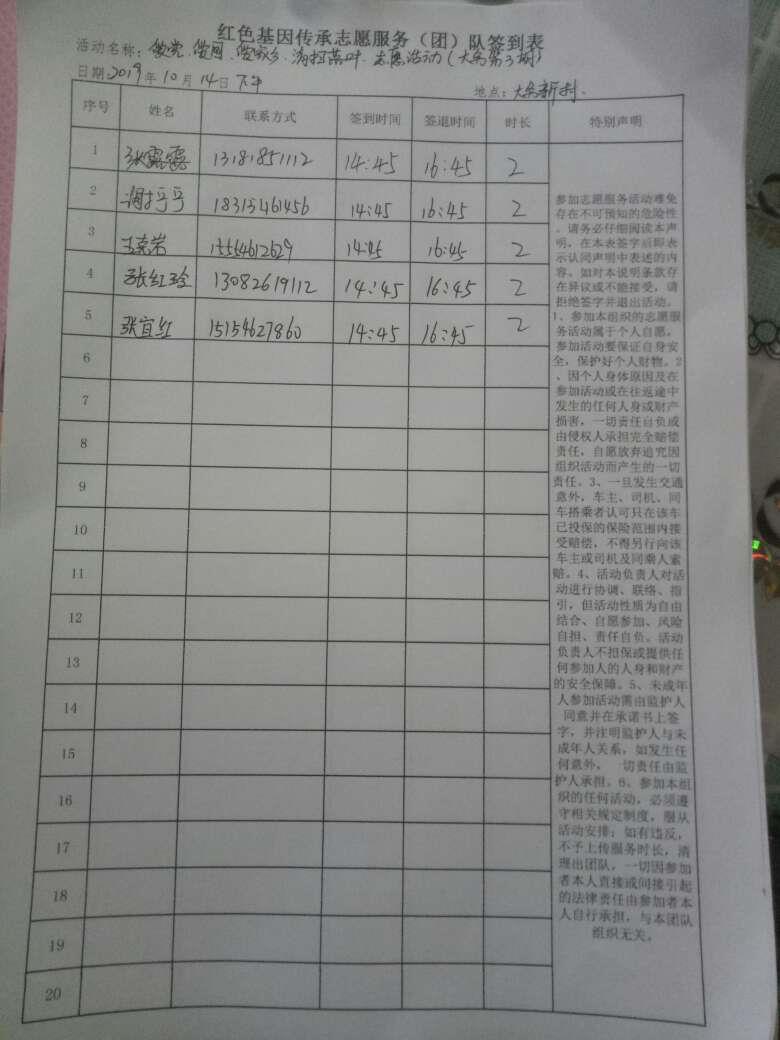 红色基因传承志愿服务（团）队签到表
活动名称：爱党、爱国、爱家乡、清扫落叶 志愿活动（大
日期 2019年10月14日 下午
地点：大
序号 姓名 联系方式 签到时间 签退时间 时长 特别声明
1 张露露 13181851112 14:45 16:45 2
2 18315461456 14:45 16:45 2
3 王克岩 15554612629 14:45 16:45 2
4 张红玲 13082619112 14:45 16:45 2
5 张宜红 15154627860 14:45 16:45 2
6
7
8
9
10
11
12
13
14
15
16
17
18
19
20
参加志愿服务活动难免
存在不可预知的危险性
，请务必仔细阅读本声
明，在本表签字后即表
示认同声明中表述的内
容。如对本说明条款存
在异议或不能接受，请
拒绝签字并退出活动。
1、参加本组织的志愿服
务活动属于个人自愿，
参加活动要保证自身安
全，保护好个人财物。2
、因个人身体原因及在
参加活动或在往返途中
发生的任何人身或财产
损害，一切责任自负或
由侵权人承担完全赔偿
责任，自愿放弃追究因
组织活动而产生的一切
责任。3、一旦发生交通
意外，车主、司机、同
车搭乘者认可只在该车
已投保的保险范围内接
受赔偿，不得另行向该
车主或司机及同乘人索
赔。4、活动负责人对活
动进行协调、联络、指
引，但活动性质为自由
结合、自愿参加、风险
自担、责任自负。活动
负责人不担保或提供任
何参加人的人身和财产
的安全保障。5、未成年
人参加活动需由监护人
同意并在承诺书上签
字，并注明监护人与未
成年人关系，如发生任
何意外，一切责任由监
护人承担。6、参加本组
织的任何活动，必须遵
守相关规定制度，服从
活动安排；如有违反，
不予上传服务时长，清
理出团队，一切因参加
者本人直接或间接引起
的法律责任由参加者本
人自行承担，与本团队
组织无关。